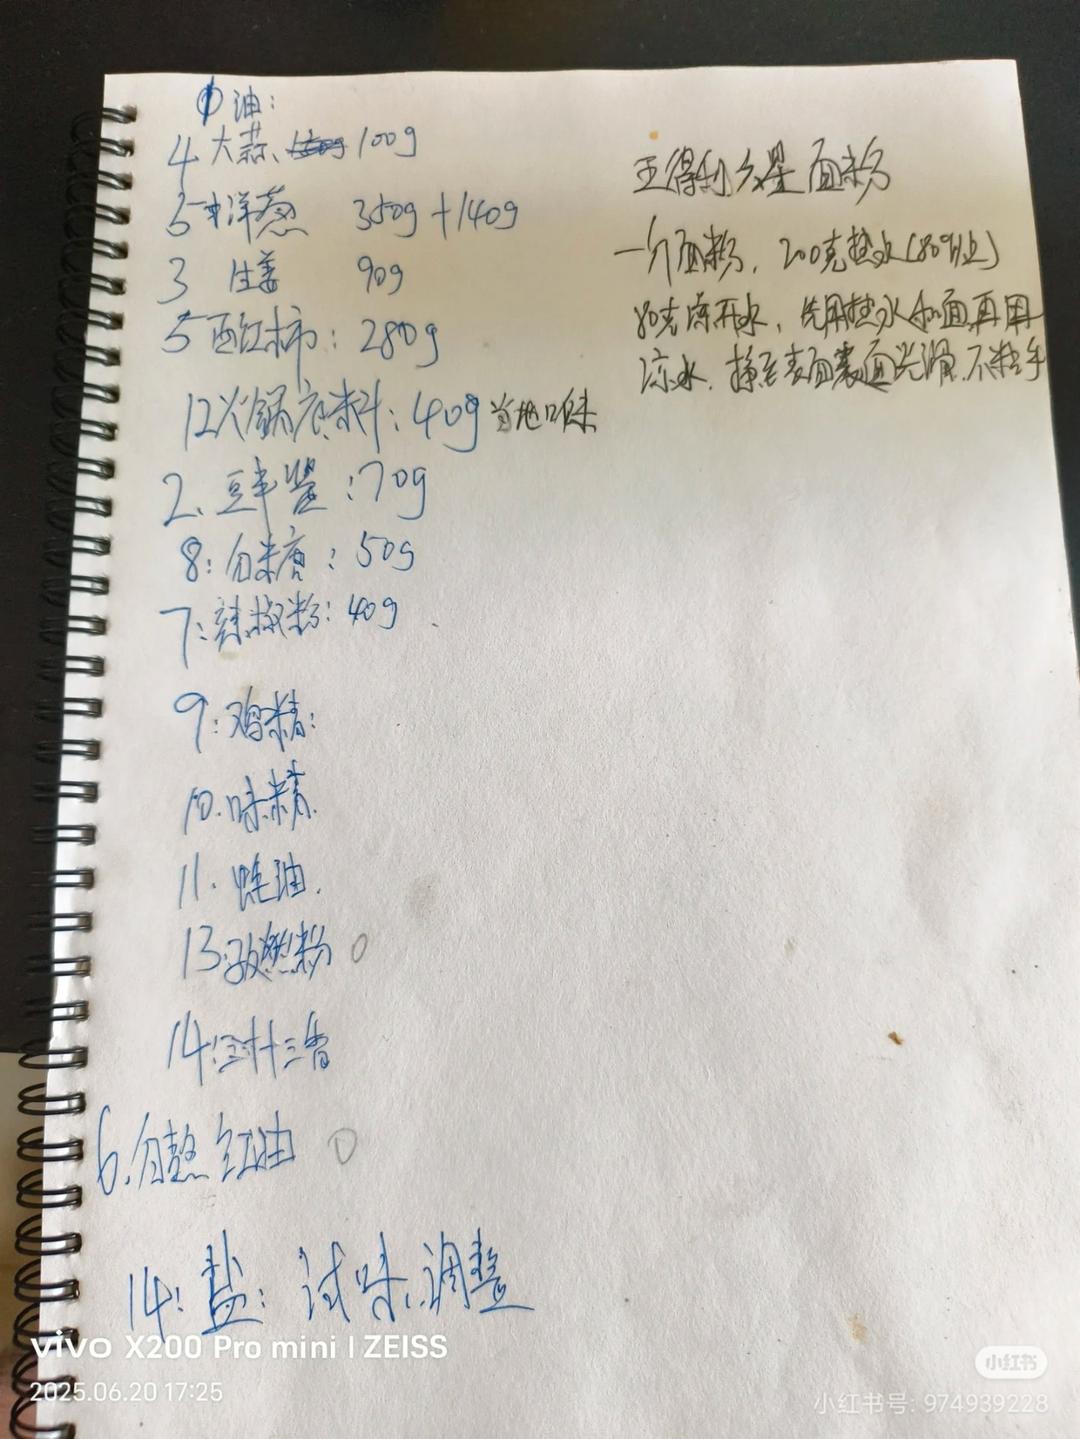 ① 油：
4 大蒜、100g
5 洋葱 350g+140g
3 生姜 90g
5 西红柿：280g
12火锅底料：40g 当地口味
2、豆半酱：70g
8：白米唐：50g
7：辣椒粉：40g
9：鸡精：
10.味精.
11.蚝油.
13 孜燃粉
14：十三香
6.自熬红油
14：盐：试味调整
五得利 星面粉
一斤面粉，200克热水(80°以上)
80克凉开水，先用热水和面再用
凉水，表面光滑.不粘手
vivo X200 Pro mini | ZEISS
2025.06.20 17:25
小红书
小红书号: 974939228